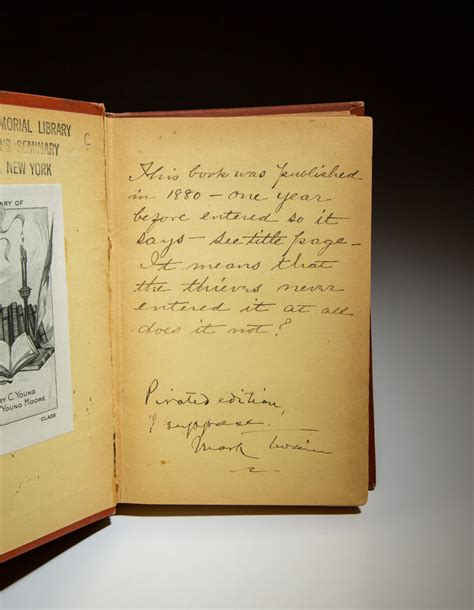 MORIAL LIBRARY
N'S SEMINARY
NEW YORK
C
ARY OF
BY C. YOUNG
YOUNG MOORE
CLASS
This book was published
in 1880 – one year
before entered so it
says – see title page –
It means that
the thieves never
entered it at all
does it not?
Pirated edition,
I suppose.
Mark Twain